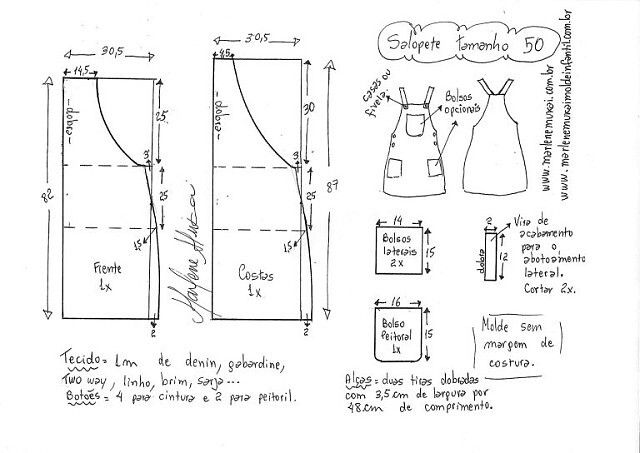 Salopete tamanho 50
30,5
14,5
25
-dobra-
3
82
25
1,5
Frente
1x
2
30,5
4,5
30
-dobra-
3
87
25
1,5
Costas
1x
2
Marlene Mukai
casas ou
fivela.
Bolsos
opcionais
www.marlenemukai.com.br
www.marlenemukaimoldeinfantil.com.br
14
Bolsos
laterais
2x
15
2
dobra
12
Vira de
acabamento
para o
abotoamento
lateral.
Cortar 2x.
16
Bolso
Peitoral
1x
15
Molde sem
margem de
costura.
Tecido= 1m de denin, gabardine,
Two way, linho, brim, sarja...
Botões = 4 para cintura e 2 para peitoril.
Alças= duas tiras dobradas
com 3,5cm de largura por
48cm de comprimento.